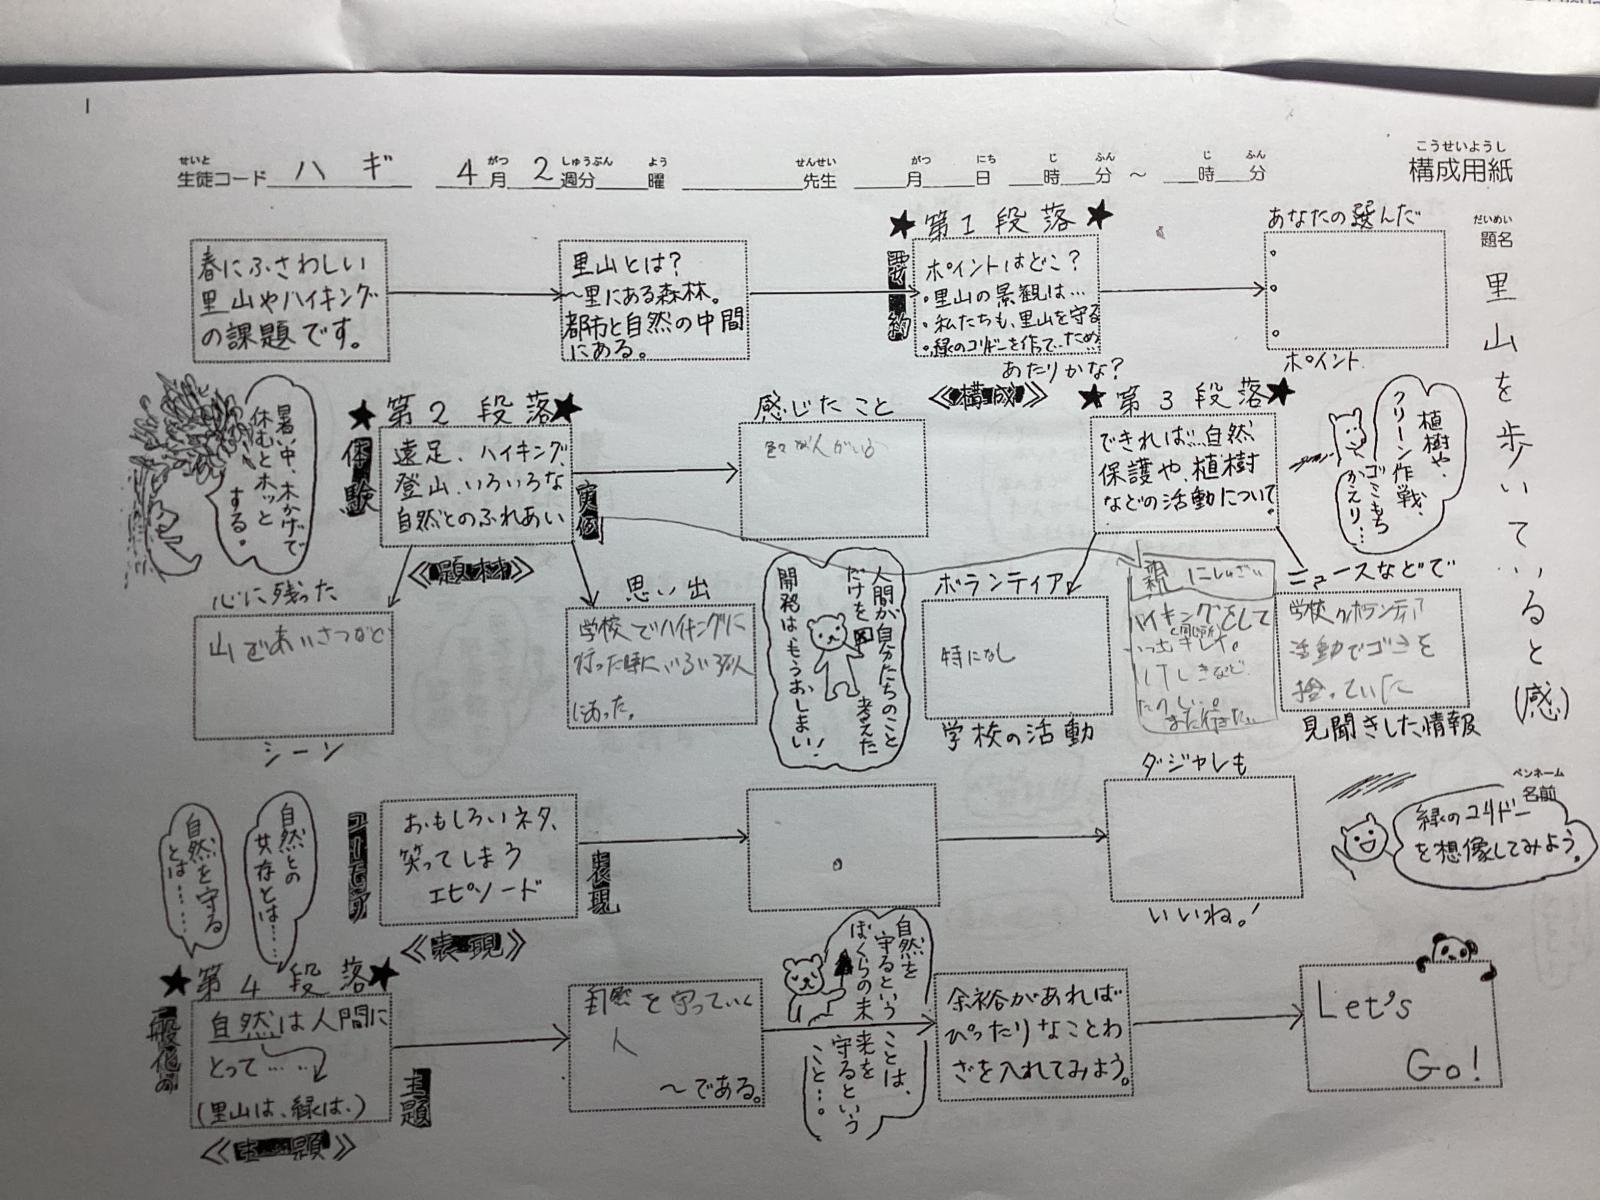 1
せいと がつ しゅうぶん よう せんせい がつ にち じ ふん じ ふん こうせいようし
生徒コード ハギ 4月 2週分 曜 先生 月 日 時 分 ～ 時 分 構成用紙
だいめい
題名
里山を歩いていると(感)
春にふさわしい
里山やハイキング
の課題です。
里山とは?
～里にある森林。
都市と自然の中間
にある。
★第1段落★
要約
ポイントはどこ?
・里山の景観は…
・私たちも、里山を守る
・緑のコリドーを作って…ため
あたりかな?
《構成》
あなたの選んだ
ポイント
暑い中、木かげで
休むとホッと
する。
★第2段落★
体験
遠足、ハイキング、
登山、いろいろな
自然とのふれあい
実例
《題材》
感じたこと
色々な人がいる
★第3段落★
できれば…自然
保護や、植樹
などの活動について。
植樹や、
クリーン作戦、
ゴミもち
かえり…
心に残った
山であいさつなど
シーン
思い出
学校でハイキングに
行った時にいろいろな人
にあった。
人間が自分たちのこと
だけを考えた
開発は、もうおしまい!
ボランティア
特になし
学校の活動
親
ハイキングをして
けしきなど
たのしい。
また行きたい
ニュースなどで
学校のボランティア
活動でゴミを
捨っていた
見聞きした情報
ペンネーム
名前
緑のコリドー
を想像してみよう。
ユーモア
おもしろいネタ、
笑ってしまう
エピソード
表現
《表現》
ダジャレも
いいね!
自然を守る
とは……
自然との
共存とは……
★第4段落★
一般化の
自然は人間に
とって……
(里山は、緑は、)
主題
《主題》
自然を守っていく
人
～である。
自然を
守るという
ことは、
ぼくらの未
来を
守るという
こと…。
余裕があれば
ぴったりなことわ
ざを入れてみよう。
Let's
Go!